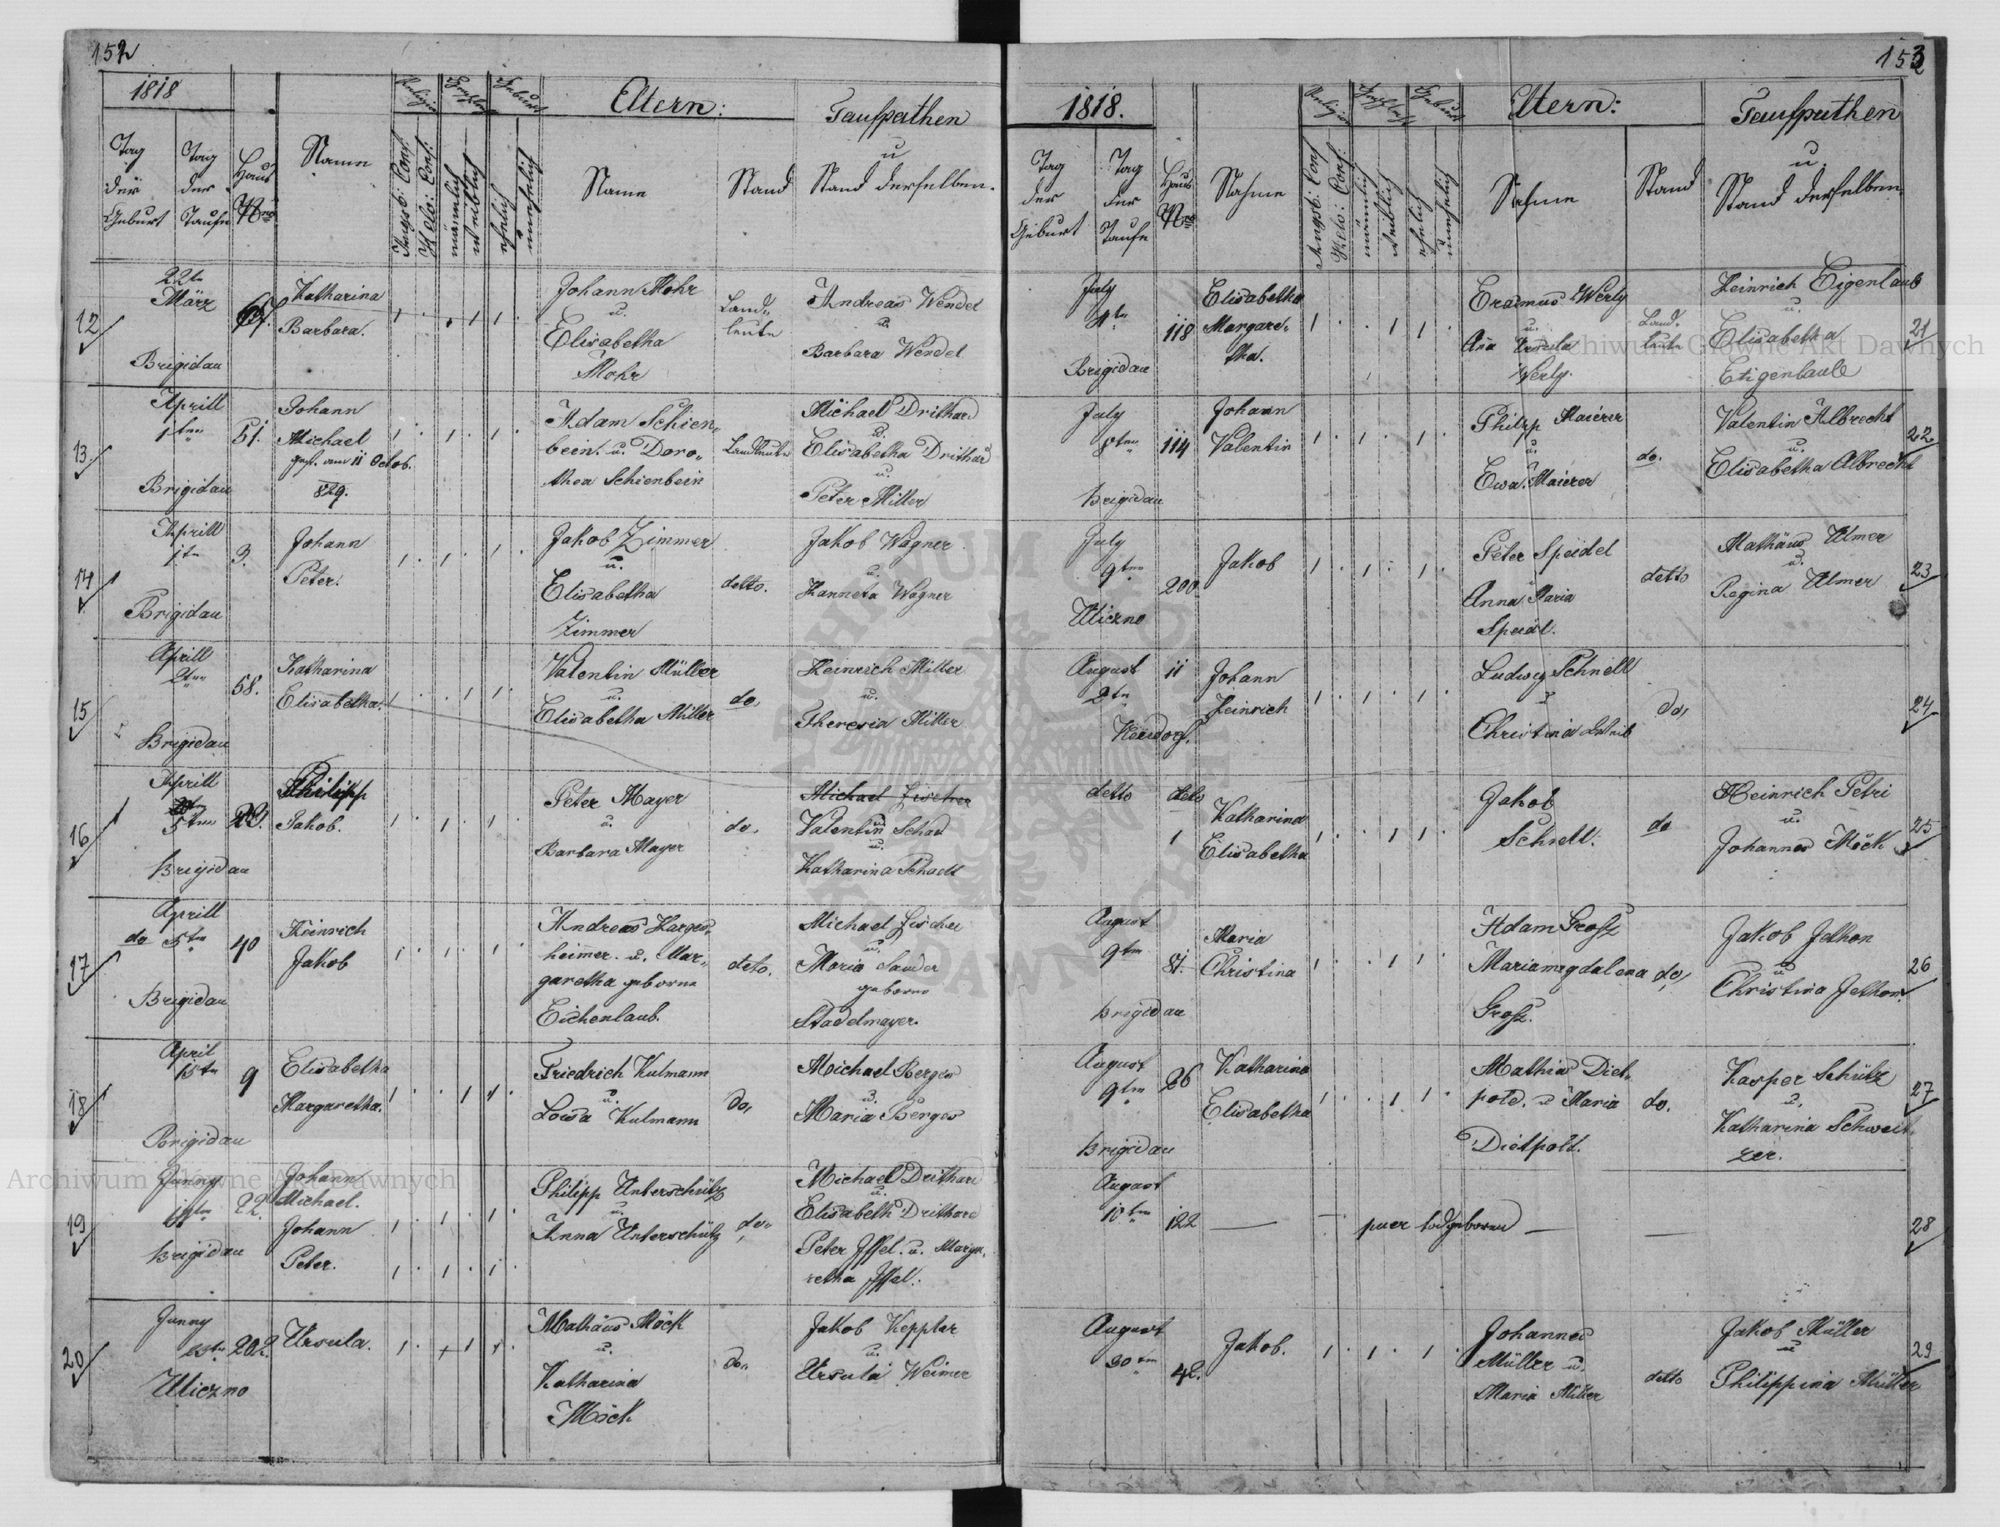 152
1818
Eltern:
Taufpathen
u
Stand derselben.
Tag der Geburt
Tag der Taufe
Haus Nro
Name
Religion
Augsb: Conf
Helv: Conf:
männlich
weiblich
ehelich
unehelich
Name
Stand
12
22te März
Brigidau
67.
Katharina
Barbara.
Johann Mohr
u.
Elisabetha
Mohr
Land-
leute
Andreas Wendel
u.
Barbara Wendel
13
Aprill
1ten
Brigidau
51.
Johann
Michael
gest. am 11 Octob.
829.
Adam Schien-
bein. u. Doro-
thea Schienbein
Landleute
Michael Drithard
u.
Elisabetha Drithard
u.
Peter Miller
14
Aprill
1te
Brigidau
3.
Johann
Peter.
Jakob Zimmer
u.
Elisabetha
Zimmer
detto.
Jakob Wagner
u.
Hanneta Wagner
15
Aprill
2ten
Brigidau
58.
Katharina
Elisabetha.
Valentin Müller
u.
Elisabetha Miller
do,
Heinrich Miller
u.
Theresia Miller
16
Aprill
5ten
Brigidau
Philipp
Jakob.
Peter Mayer
u.
Barbara Mayer
do,
Michael Fischer
Valentin Schad
u.
Katharina Schadt
17
Aprill
do 5ten
Brigidau
40
Heinrich
Jakob
Andreas Harges-
heimer. u. Mar-
garetha geborne
Eichenlaub.
deto.
Michael Fischer
u.
Maria Sauder
geborne
Stadelmayer.
18
April
Brigidau
9
Elisabetha
Margaretha.
Friedrich Kulmann
u.
Lowsa Kulmann
do,
Michael Berges
u.
Maria Berges
19
Junny
Brigidau
22.
Johann
Michael.
Johann
Peter.
Philipp Unterschütz
u.
Anna Unterschütz
do,
Michael Drithard
u.
Elisabeth Drithard
Peter Iffel. u. Marga-
retha Iffel.
20
Junny
Ugiczno
202
Ursula.
Mathäus Möck
u.
Katharina
Möck
do,
Jakob Kepplar
u.
Ursula Weimer
153
1818.
Eltern:
Taufpathen
u.
Stand derselben.
Tag der Geburt
Tag der Taufe
Haus Nro
Nahme
Augsb: Conf
Helv: Conf:
männlich
weiblich
ehelich
unehelich
Nahme
Stand
July
4te
Brigidau
118
Elisabetha
Margare-
tha.
Erasmus Werly
u.
Aña Ursula
Werly.
Land-
leute
Heinrich Eigenlaub
u.
Elisabetha
Eigenlaub
21
July
8ten
Brigidau
114
Johann
Valentin
Philipp Maierer
u.
Ewa Maierer
do.
Valentin Albrecht
u.
Elisabetha Albrecht
22
July
9ten
Ugiczno
200
Jakob
Peter Speidel
Anna Maria
Speidl.
detto
Mathäus Ulmer
u.
Regina Ulmer
23
August
2te
Neudorf.
11
Johann
Heinrich
Ludwig Schnell
Christina Schnell
do,
24
detto
deto
1
Katharina
Elisabetha
Jakob
Schnell.
do
Heinrich Petri
u.
Johannes Möck
25
August
9ten
Brigidau
81.
Maria
Christina
Adam Groß
Mariamagdalena
Groß.
do,
Jakob Jethon
u
Christina Jethon
26
August
9ten
Brigidau
26
Katharina
Elisabetha
Mathias Diet-
pold. u Maria
Dietpolt.
do.
Kasper Schütz
u,
Katharina Schweit-
zer.
27
August
122
puer todgeboren
28
August
30ten
42.
Jakob.
Johannes
Müller u.
Maria Müller
detto
Jakob Müller
u
Philippina Müller
29
Archiwum Główne Akt Dawnych
Archiwum Główne Akt Dawnych
ARCHIWUM GŁÓWNE AKT DAWNYCH